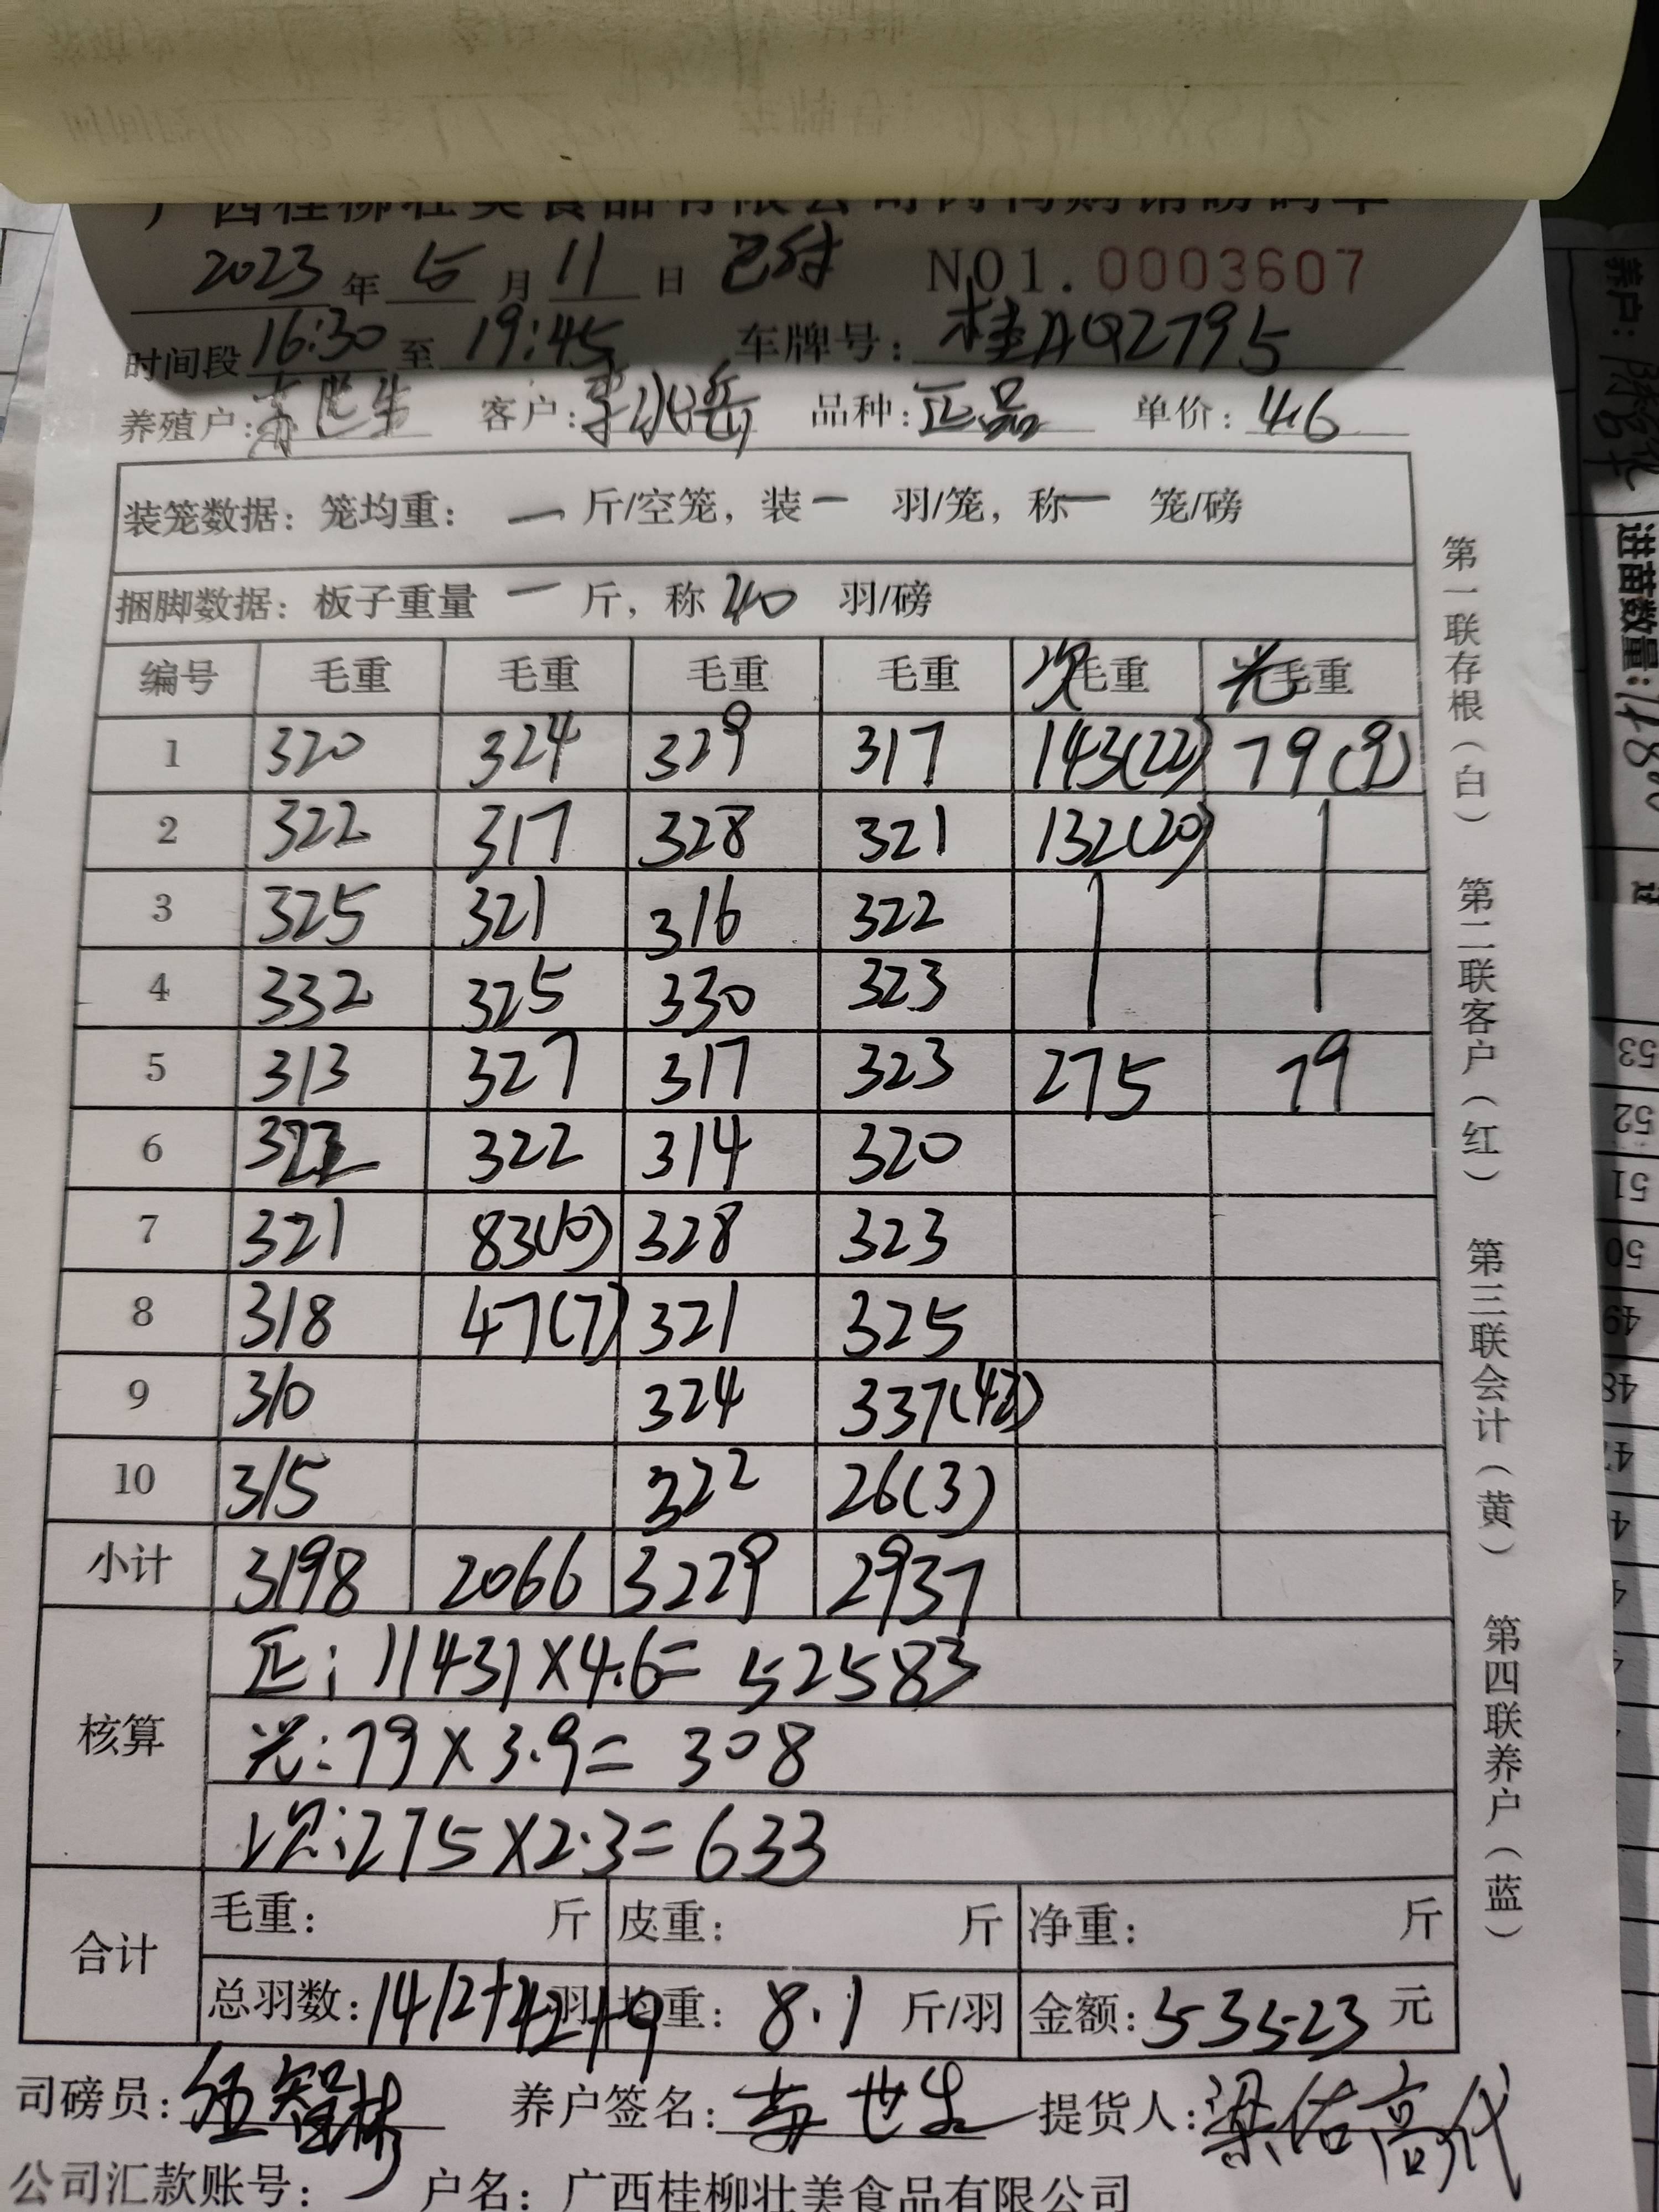 广西桂柳壮美食品有限公司肉鸭购销磅码单
2023年5月11日 已付 NO1.0003607
时间段16:30至19:45 车牌号:桂AQ2795
养殖户: 客户: 品种:正品 单价:4.6
装笼数据:笼均重:一斤/空笼,装一羽/笼,称一笼/磅
捆脚数据:板子重量一斤,称40羽/磅
编号 毛重 毛重 毛重 毛重 次毛重 光毛重
1 320 324 329 317 143(22) 79(9)
2 322 317 328 321 132(20)
3 325 321 316 322
4 332 325 330 323
5 313 327 317 323 275 79
6 322 322 314 320
7 321 83(10) 328 323
8 318 47(7) 321 325
9 310 324 337(42)
10 315 322 26(3)
小计 3198 2066 3229 2937
核算
正:11431×4.6=52583
光:79×3.9=308
次:275×2.3=633
合计
毛重: 斤 皮重: 斤 净重: 斤
总羽数:1412+42+9羽 均重:8.1斤/羽 金额:53523元
司磅员:伍智彬 养户签名: 世生 提货人:梁佑高代
公司汇款账号: 户名:广西桂柳壮美食品有限公司
第一联存根(白) 第二联客户(红) 第三联会计(黄) 第四联养户(蓝)
养户:
进苗数量:
53
52
51
50
49
48